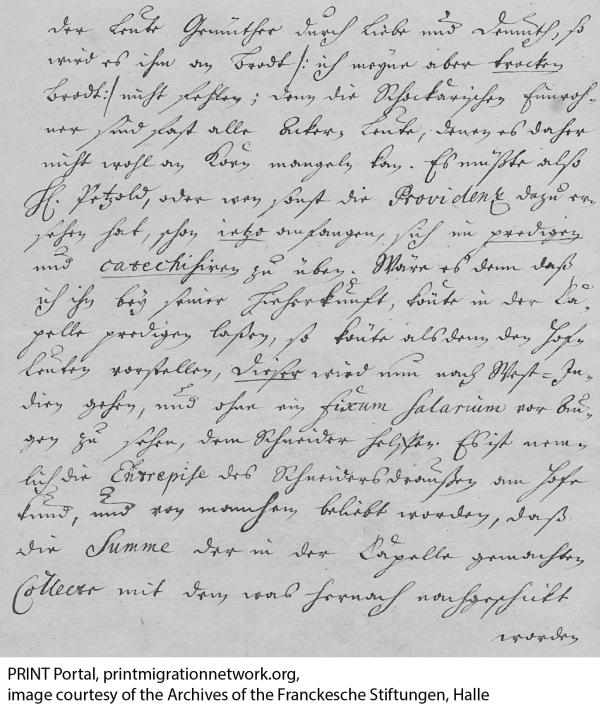 der Leute Gemüther durch Liebe und Demuth, so
wird es ihm an Brodt /: ich meyne aber trocken
Brodt :/ nicht fehlen; denn die Schockarischen Einwoh-
ner sind fast alle Acker-Leute, denen es daher
nicht wohl an Korn mangeln kan. Es müßte also
H. Petzold, oder wen sonst die Providenz dazu er-
sehen hat, schon ietzo anfangen, sich im predigen
und catechisiren zu üben. Wäre es denn daß
ich ihn bey seiner Hieherkunft, könte in der Ca-
pelle predigen laßen, so könte als denn den Hof-
Leuten vorstellen, dieser wird nun nach West-In-
dien gehen, und ohne ein fixum salarium vor Au-
gen zu sehen, dem Schneider helffen. Es ist nem-
lich die Entrepise des Schneiders draußen am Hofe
kund, und von manchem beliebt worden, daß
die Summe der in der Capelle gemachten
Collecte mit dem was hernach nachgeschickt
worden
PRINT Portal, printmigrationnetwork.org,
image courtesy of the Archives of the Franckesche Stiftungen, Halle